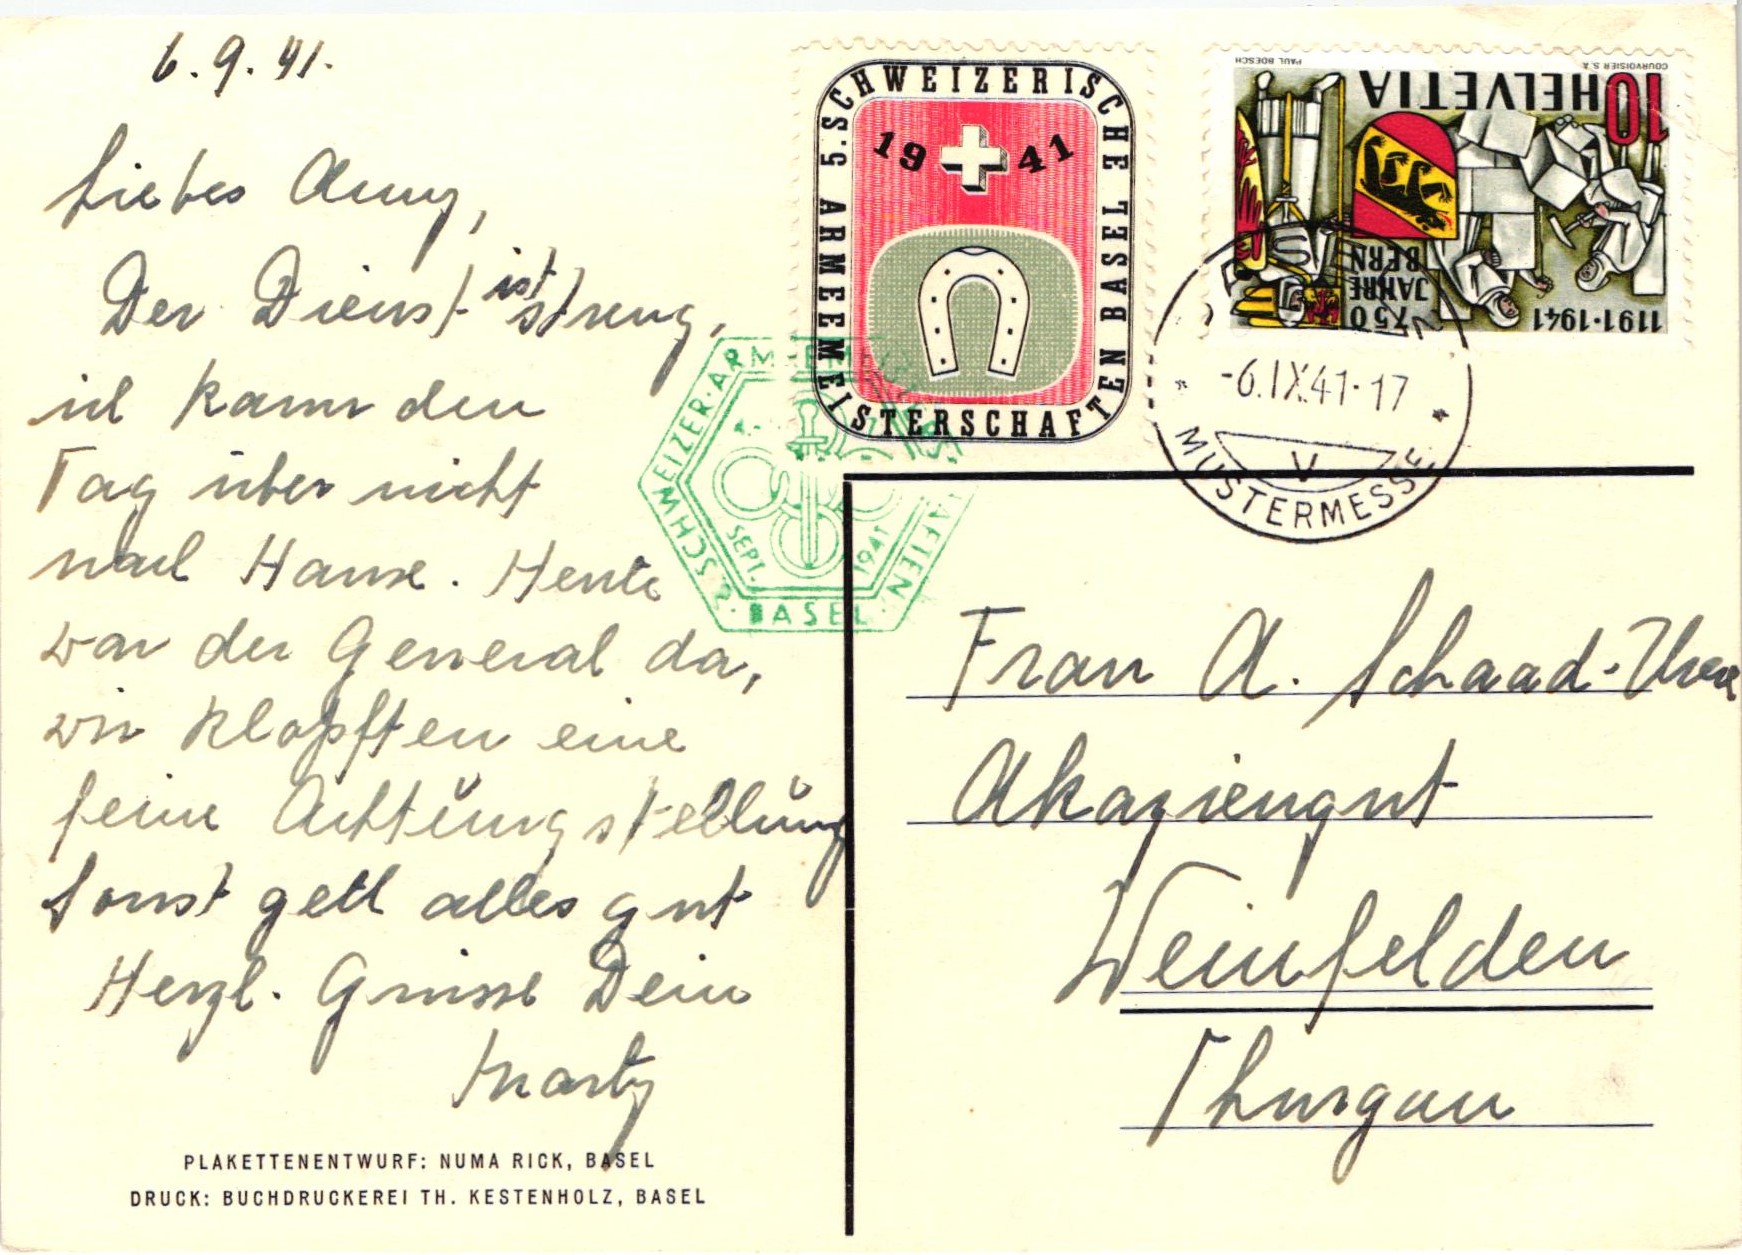 6.9.41.
Liebes Anny,
Der Dienst ist streng,
ich kann den
Tag über nicht
nach Hause. Heute
war der General da,
wir klopften eine
feine Achtungstellung
Sonst geth alles gut
Herzl. Grüsse Dein
Marty
PLAKETTENENTWURF: NUMA RICK, BASEL
DRUCK: BUCHDRUCKEREI TH. KESTENHOLZ, BASEL
5. SCHWEIZERISCHE ARMEEMEISTERSCHAFTEN BASEL
1941
SCHWEIZER. ARMEEMEISTERSCHAFTEN
SEPT. 1941
BASEL
HELVETIA
10
PAUL BOESCH
COURVOISIER S.A.
750
JAHRE
BERN
1191·1941
-6.IX.41·17
V
MUSTERMESSE
Frau A. Schaad-
Akaziengut
Weinfelden
Thurgau